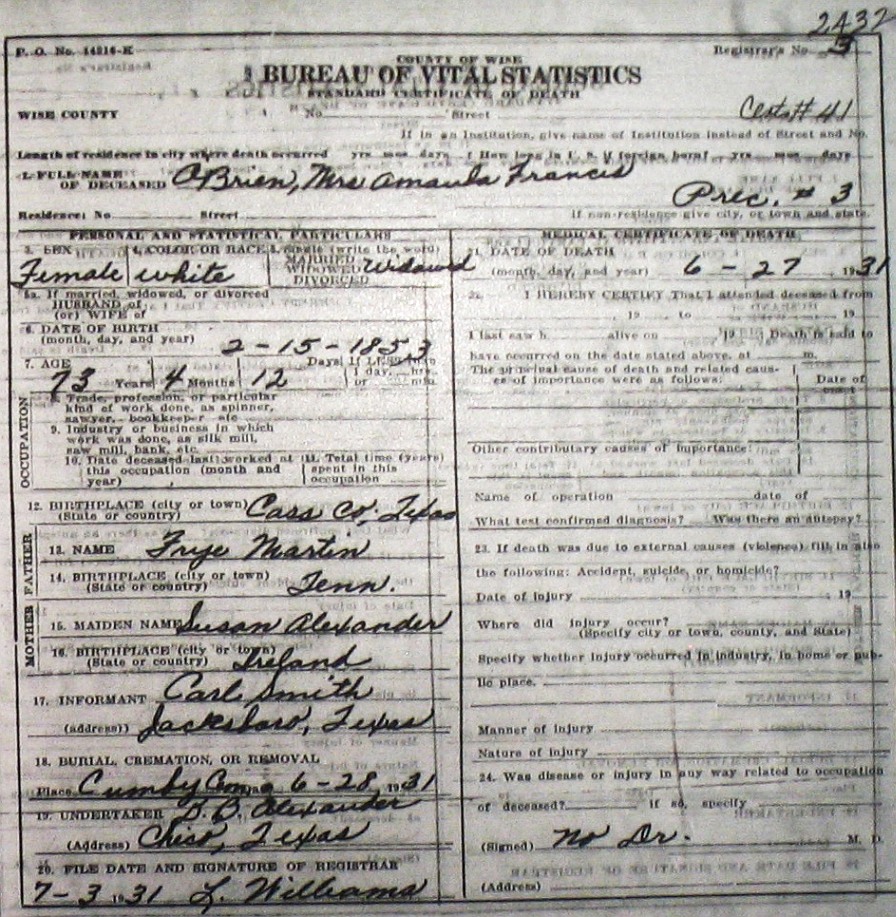 2432
P. O. No. 14216-K
Registrar's No. 3
COUNTY OF WISE
BUREAU OF VITAL STATISTICS
STANDARD CERTIFICATE OF DEATH
WISE COUNTY No. Street # 41
If in an Institution, give name of Institution instead of Street and No.
Length of residence in city where death occurred yrs mos days How long in U. S. if foreign born? yrs mos days
1. FULL NAME
OF DECEASED O'Brien, Mrs Amanda Francis
Prec. # 3
Residence: No Street
If non-residence give city, or town and state.
PERSONAL AND STATISTICAL PARTICULARS
3. SEX 4. COLOR OR RACE 5. Single (write the word)
MARRIED
WIDOWED
DIVORCED
Female white Widowd
5a. If married, widowed, or divorced
HUSBAND of
(or) WIFE of
6. DATE OF BIRTH
(month, day, and year) 2-15-1853
7. AGE Days If LESS than
1 day, hrs.
73 Years 4 Months 12 or min.
OCCUPATION
8. Trade, profession, or particular
kind of work done, as spinner,
sawyer, bookkeeper etc
9. Industry or business in which
work was done, as silk mill,
saw mill, bank, etc.
10. Date deceased last worked at 11. Total time (years)
this occupation (month and spent in this
year) occupation
12. BIRTHPLACE (city or town) Cass Co; Texas
(State or country)
FATHER
13. NAME Frye Martin
14. BIRTHPLACE (city or town)
(State or country) Tenn.
MOTHER
15. MAIDEN NAME Susan Alexander
16. BIRTHPLACE (city or town)
(State or country) Ireland
17. INFORMANT Carl Smith
(address) Jacksboro, Texas
18. BURIAL, CREMATION, OR REMOVAL
Place Cumby Cem 6-28, 1931
19. UNDERTAKER D. B. Alexander
(Address) Chico, Texas
20. FILE DATE AND SIGNATURE OF REGISTRAR
7-3 1931 L. Williams
MEDICAL CERTIFICATE OF DEATH
DATE OF DEATH
(month, day, and year) 6-27 1931
I HEREBY CERTIFY That I attended deceased from
, 19 to , 19
I last saw h alive on 19 Death is said to
have occurred on the date stated above, at m.
The principal cause of death and related causes
of importance were as follows: Date of
onset
Other contributary causes of importance:
Name of operation date of
What test confirmed diagnosis? Was there an autopsy?
23. If death was due to external causes (violence) fill in also
the following: Accident, suicide, or homicide?
Date of injury , 19
Where did injury occur?
(Specify city or town, county, and State)
Specify whether injury occurred in industry, in home or pub-
lic place.
Manner of injury
Nature of injury
24. Was disease or injury in any way related to occupation
of deceased? if so, specify
(Signed) No Dr. M. D.
(Address)